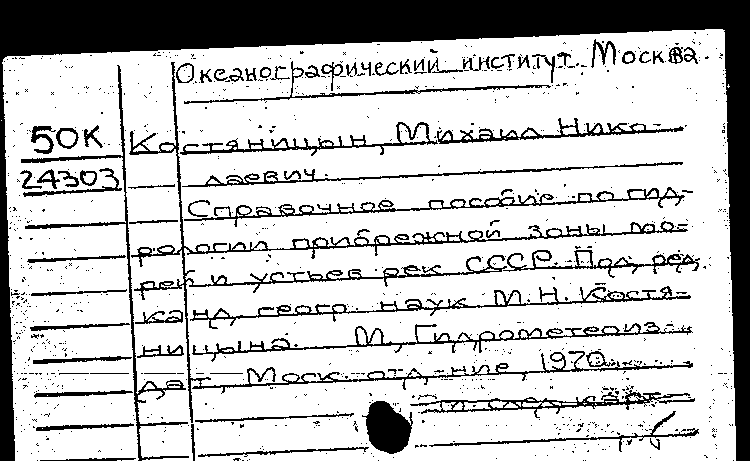 Океанографический институт. Москва.
50К Костяницын, Михаил Нико-
24303 лаевич.
Справочное пособие по гид-
рологии прибрежной зоны мо-
рей и устьев рек СССР. Под ред.
канд. геогр. наук М.Н. Костя-
ницына. М., Гидрометеоиз-
дат, Моск. отд-ние, 1970.
см. след. карт.